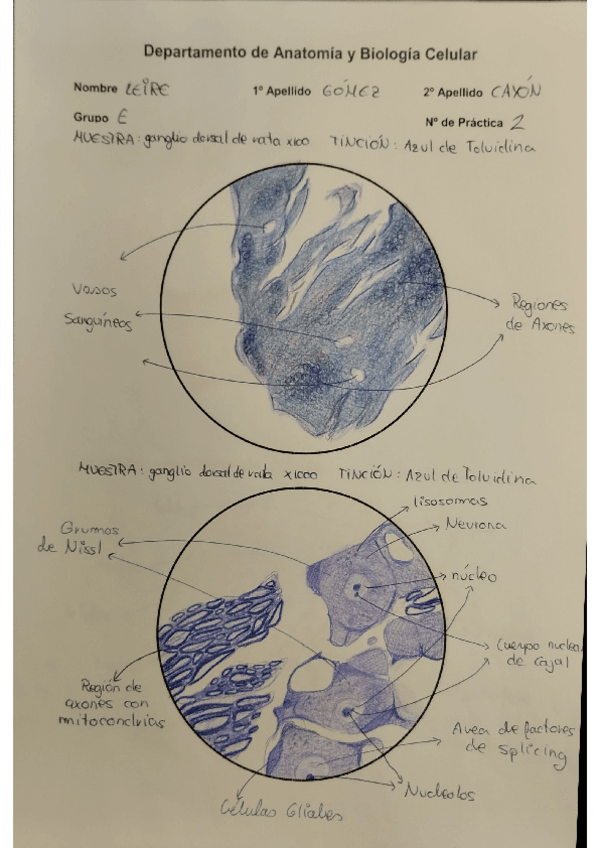 Departamento de Anatomía y Biología Celular
Nombre LEIRE 1º Apellido GÓMEZ 2º Apellido CAYÓN
Grupo E Nº de Práctica 2
MUESTRA: ganglio dorsal de rata x100 TINCIÓN: Azul de Toluidina
Vasos
Sanguíneos
Regiones
de Axones
MUESTRA: ganglio dorsal de rata x1000 TINCIÓN: Azul de Toluidina
lisosomas
Grumos
de Nissl
Neurona
núcleo
Cuerpo nuclea
de cajal
Región de
axones con
mitocondrias
Area de factores
de splicing
Nucleolos
Células Gliales